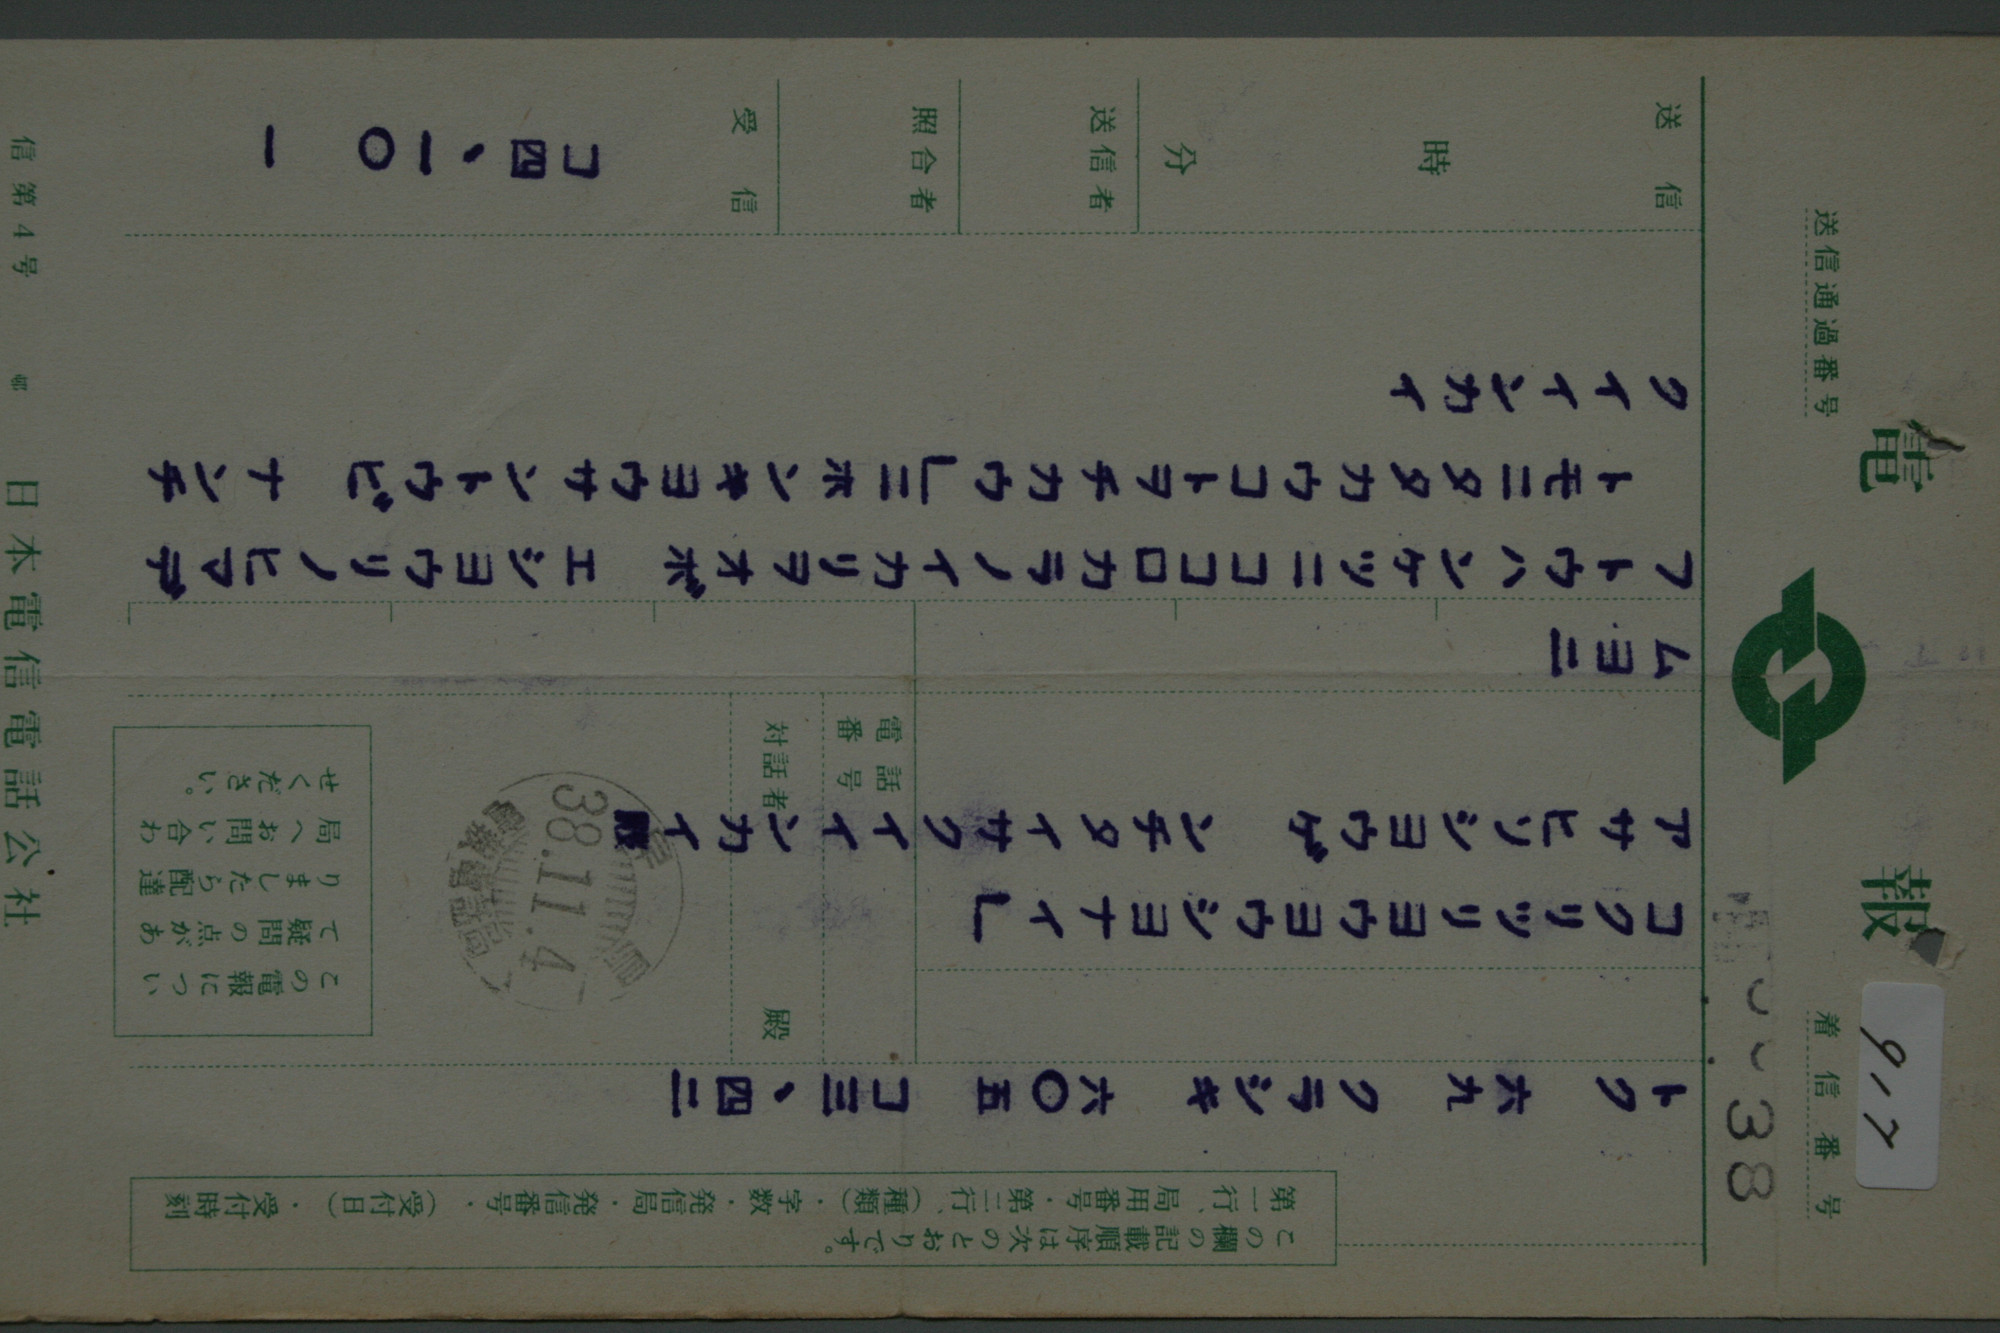 電報
着信番号
917
38
送信通過番号
この欄の記載順序は次のとおりです。
第一行、局用番号・第二行、（種類）・字数・発信局・発信番号・（受付日）・受付時刻
トク 六九 クラシキ 六〇五 コ三、四二
コクリツリヨウヨウシヨナイ」
アサヒソシヨウゲンチタイサクイインカイ殿
電話番号
対話者 殿
38.11.4
この電報につい
て疑問の点があ
りましたら配達
局へお問い合わ
せください。
ムヨニ
フトウハンケツニココロカラノイカリヲオボエシヨウリノヒマデ
トモニタタカウコトヲチカウ」ニホンキヨウサントウビナンチ
クイインカイ
送信
時
分
送信者
照合者
受信
コ四、一〇 一
信第4号
日本電信電話公社